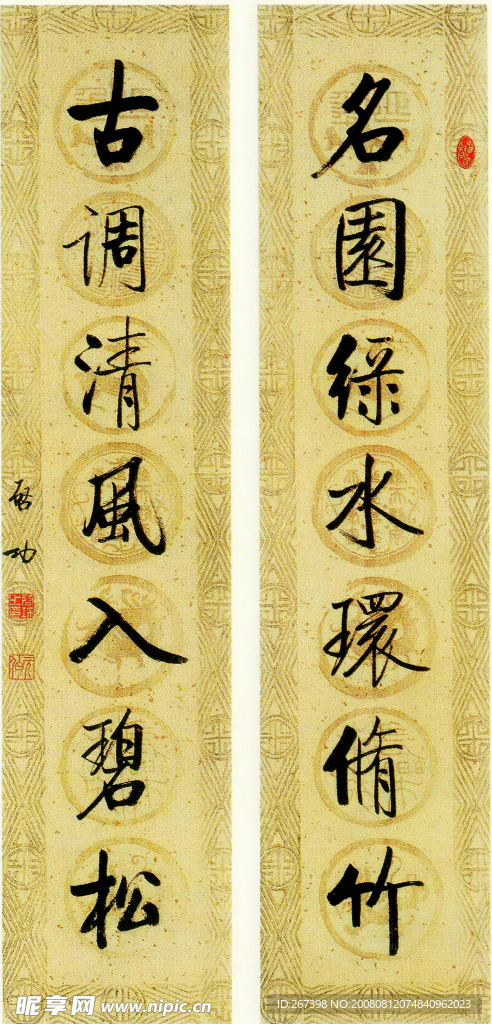 名園綠水環脩竹
古调清風入碧松
啓功
昵享网 www.nipic.cn
ID:267398 NO:20080812074840962023